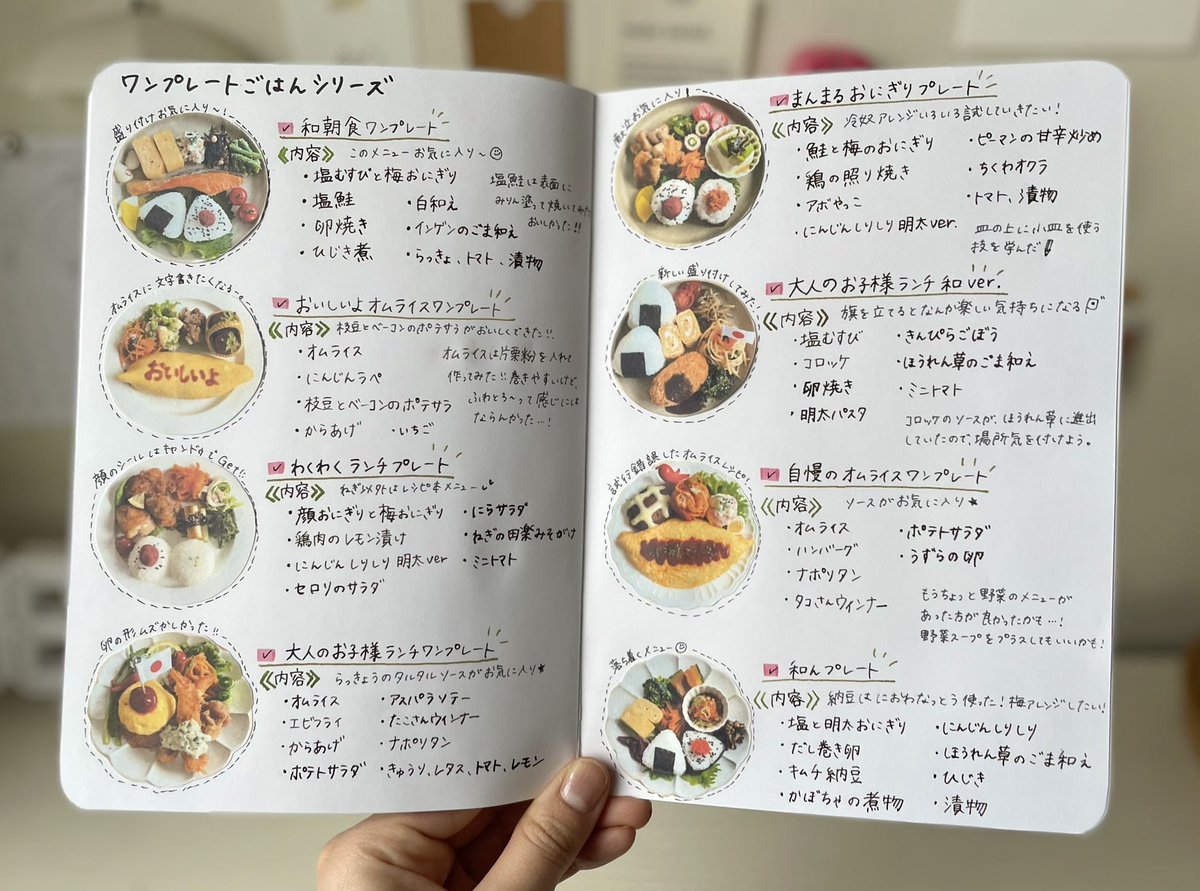 ワンプレートごはんシリーズ
盛り付けお気に入り〜!
和朝食ワンプレート
《内容》 このメニューお気に入り〜☺
・塩むすびと梅おにぎり
・塩鮭
・卵焼き
・ひじき煮
・白和え
・インゲンのごま和え
・らっきょ、トマト、漬物
塩鮭は表面に
みりん塗って焼いてみた
おいしかった!!
オムライスに文字書きたくなる〜
おいしいよ
おいしいよオムライスワンプレート
《内容》 枝豆とベーコンのポテサラがおいしくできた!!
・オムライス
・にんじんラペ
・枝豆とベーコンのポテサラ
・からあげ ・いちご
オムライスは片栗粉を入れて
作ってみた!!巻きやすいけど、
ふわとろ〜って感じには
ならんかった…!
顔のシールはキャンドゥでGet!!
わくわくランチプレート
《内容》 ねぎ以外はレシピ本メニュー
・顔おにぎりと梅おにぎり
・鶏肉のレモン漬け
・にんじんしりしり 明太ver
・セロリのサラダ
・にらサラダ
・ねぎの田楽みそがけ
・ミニトマト
卵の形ムズかしかった!!
大人のお子様ランチワンプレート
《内容》 らっきょうのタルタルソースがお気に入り★
・オムライス
・エビフライ
・からあげ
・ポテトサラダ
・アスパラソテー
・たこさんウィンナー
・ナポリタン
・きゅうり、レタス、トマト、レモン
お気に入り!
まんまるおにぎりプレート
《内容》 冷奴アレンジいろいろ試していきたい!
・鮭と梅のおにぎり
・鶏の照り焼き
・アボやっこ
・にんじんしりしり 明太ver.
・ピーマンの甘辛炒め
・ちくわオクラ
・トマト、漬物
皿の上に小皿を使う
技を学んだ!
新しい盛り付けしてみた〜
大人のお子様ランチ 和ver.
《内容》 旗を立てるとなんか楽しい気持ちになる
・塩むすび
・コロッケ
・卵焼き
・明太パスタ
・きんぴらごぼう
・ほうれん草のごま和え
・ミニトマト
コロッケのソースが、ほうれん草に進出
していたので、場所気を付けよう。
試行錯誤したオムライスレシピ!
自慢のオムライスワンプレート
《内容》 ソースがお気に入り★
・オムライス
・ハンバーグ
・ナポリタン
・タコさんウィンナー
・ポテトサラダ
・うずらの卵
もうちょっと野菜のメニューが
あった方が良かったかも…!
野菜スープをプラスしてもいいかも!
落ち着くメニュー☺
和んプレート
《内容》 納豆はにおわなっとう使った!梅アレンジしたい!
・塩と明太おにぎり
・だし巻き卵
・キムチ納豆
・かぼちゃの煮物
・にんじんしりしり
・ほうれん草のごま和え
・ひじき
・漬物